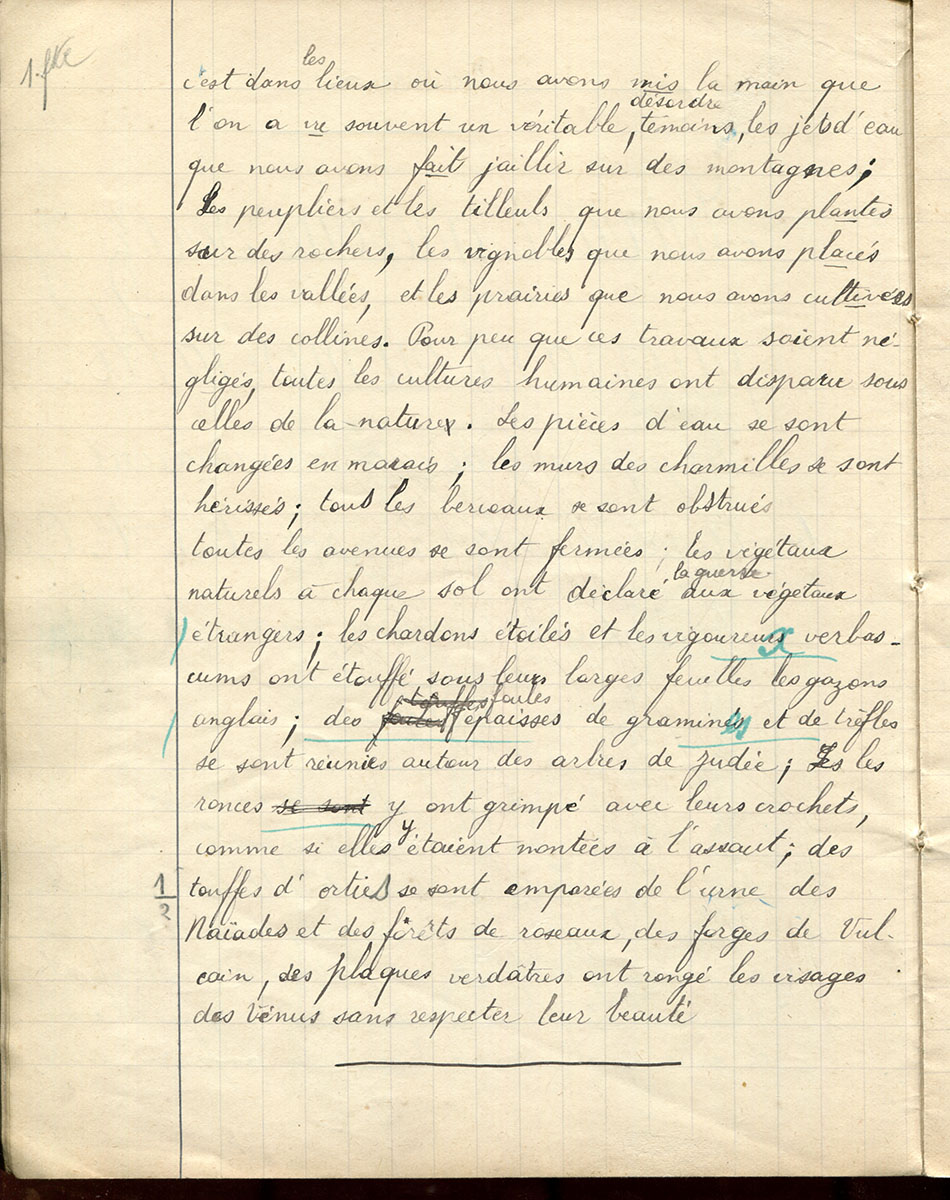 1 fte
les
c'est dans lieux où nous avons mis la main que
désordre
l'on a vu souvent un véritable, témoins, les jets d'eau
que nous avons fait jaillir sur des montagnes;
Les peupliers et les tilleuls que nous avons plantés
sur des rochers, les vignobles que nous avons placés
dans les vallées, et les prairies que nous avons cultivées
sur des collines. Pour peu que ces travaux soient né-
gligés, toutes les cultures humaines ont disparu sous
celles de la nature. Les pièces d'eau se sont
changées en marais; les murs des charmilles se sont
hérissés; tous les berceaux se sont obstrués
toutes les avenues se sont fermées; les végétaux
la guerre
naturels à chaque sol ont déclaré aux végétaux
étrangers; les chardons étoilés et les vigoureux verbas-
cums ont étouffé sous leurs larges feuilles les gazons
touffes foules
anglais; des foules épaisses de graminées et de trèfles
se sont réunies autour des arbres de Judée; les
ronces se sont y ont grimpé avec leurs crochets,
comme si elles y étaient montées à l'assaut; des
1/2
touffes d'orties se sont emparées de l'urne des
Naïades et des forêts de roseaux, des forges de Vul-
cain, des plaques verdâtres ont rongé les visages
des Vénus sans respecter leur beauté